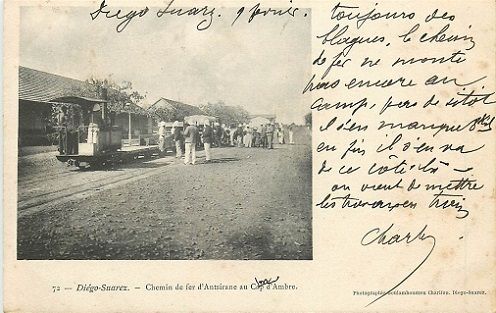 Diego Suarez 9 février.
toujours des
blagues, le chemin
de fer ne monte
pas encore au
Camp, pas de sitôt
il s'en manque 8 kil
enfin il s'en va
de ce côté-là
on vient de mettre
les travaux en train
Charles
72 — Diégo-Suarez. — Chemin de fer d'Antsirane au Cap d'Ambre.
Photographie Schlamboumou Charifou. Diego-Suarez.